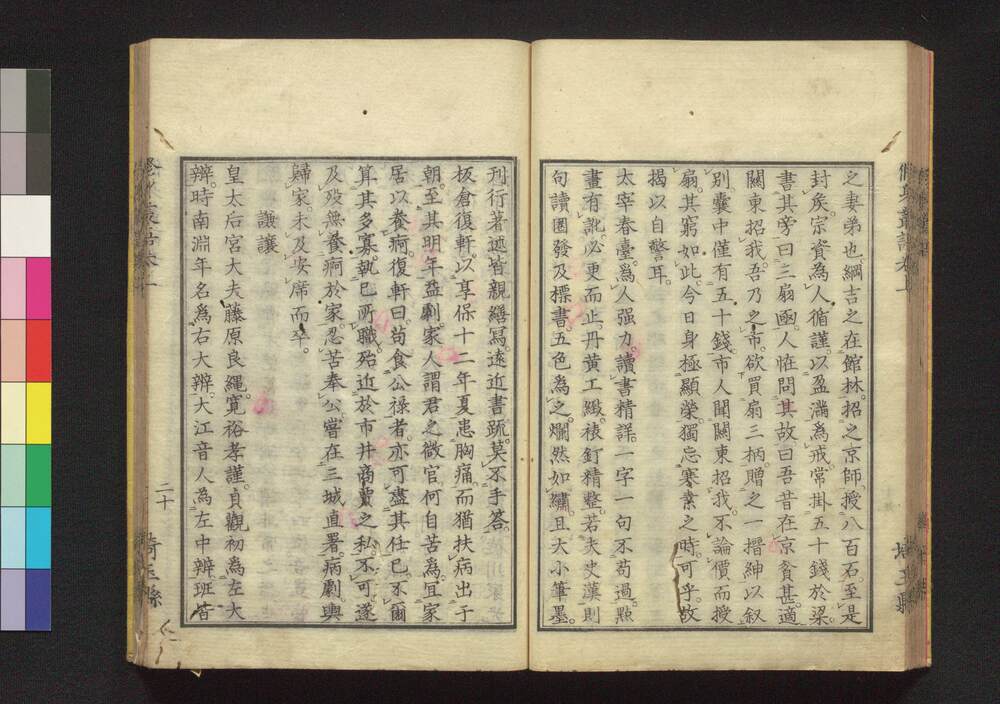 之妻弟也綱吉之在館林招之京師授八百石至是
封矦宗資為人循謹以盈滿為戒常掛五十錢於梁
書其旁曰三扇凾人恠問其故曰吾昔在京貧甚適
關東招我吾乃之市欲買扇三柄贈之一搢紳以叙
別囊中僅有五十錢市人聞關東招我不論價而授
扇其窮如此今日身極顯榮獨忘寒素之時可乎故
揭以自警耳
太宰春臺為人强力讀書精詳一字一句不苟過㸃
畫有訛必更而止丹黄工緻裱釘精整若夫史漢則
句讀圏發及標書五色為之爛然如繡且大小筆墨
刊行著述皆親繕寫遠近書䟽莫不手答
板倉復軒以享保十二年夏患胸痛而猶扶病出于
朝至其明年益劇家人謂君之微官何自苦為宜家
居以養痾復軒曰苟食公祿者亦可盡其仕已不爾
算其多寡執巳所職殆近於市井商賈之私不可遂
及歿無養痾於家忍苦奉公嘗在三城直署病劇輿
歸家未及安席而卒
謙讓
皇太后宮大夫藤原良繩寬裕孝謹貞觀初為左大
辨時南淵年名為右大辨大江音人為左中辨班皆
二十
埼玉縣